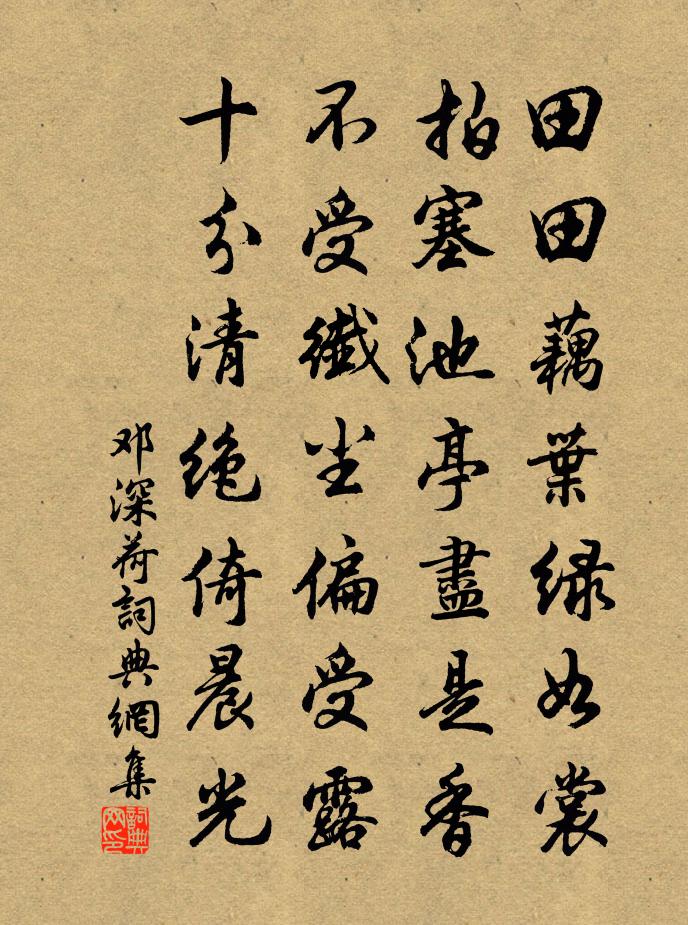 田田藕葉緑如裳
拍塞池亭盡是香
不受纖尘偏受露
十分清絶倚晨光
邓深荷詞典網集
詞典网印